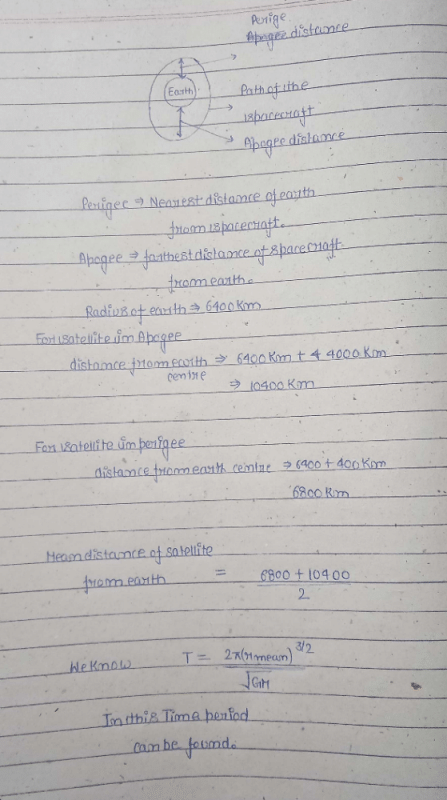 Perige
Apogee distance
Earth
Path of the
spacecraft
Apogee distance
Perigee ⇒ Nearest distance of earth
from spacecraft.
Apogee ⇒ farthest distance of spacecraft
from earth.
Radius of earth ⇒ 6400Km
For satellite in Apogee
distance from earth ⇒ 6400Km + 4 4000Km
centre
⇒ 10400Km
For satellite in perigee
distance from earth centre ⇒ 6400 + 400Km
6800Km
Mean distance of satellite
from earth = 6800 + 10400
2
We Know T = 2π(r mean)^3/2
√GM
In this Time period
can be found.